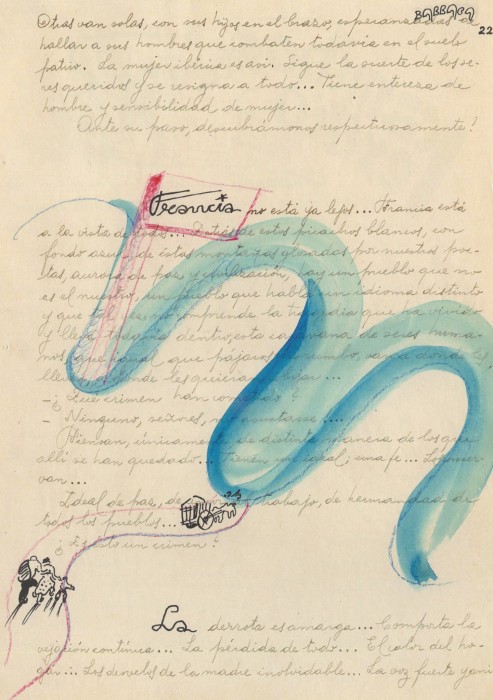 22
Otras van solas, con sus hijos en el brazo, esperanzadas a
hallar a sus hombres que combaten todavía en el suelo
patrio. La mujer ibérica es así. Sigue la suerte de los se-
res queridos y se resigna a todo... Tiene entereza de
hombre y sensibilidad de mujer...
Ante su paso, descubrámonos respetuosamente!
Francia no está ya lejos... Francia está
a la vista de todos... Detrás de estos picachos blancos, con
fondo azul, de estas montañas glosadas por nuestros poe-
tas, aurora de paz y civilización, hay un pueblo que no
es el nuestro, un pueblo que habla un idioma distinto
y que no comprende la tragedia que ha vivido
y lleva dentro, esta caravana de seres huma-
nos que igual que pájaros sin rumbo, van a donde les
lleven a donde les quieran dejar...
- ¿Qué crimen han cometido?
- Ninguno, señores, no asustarse...
Piensan, únicamente de distinta manera de los que
allí se han quedado... Tienen un ideal; una fe... Conser-
van...
Ideal de paz, de trabajo, de hermandad de
todos los pueblos...
¿Es esto un crimen?
La derrota es amarga... Comporta la
vejación contínua... La pérdida de todo... El calor del ho-
gar... Los desvelos de la madre inolvidable... La voz fuerte